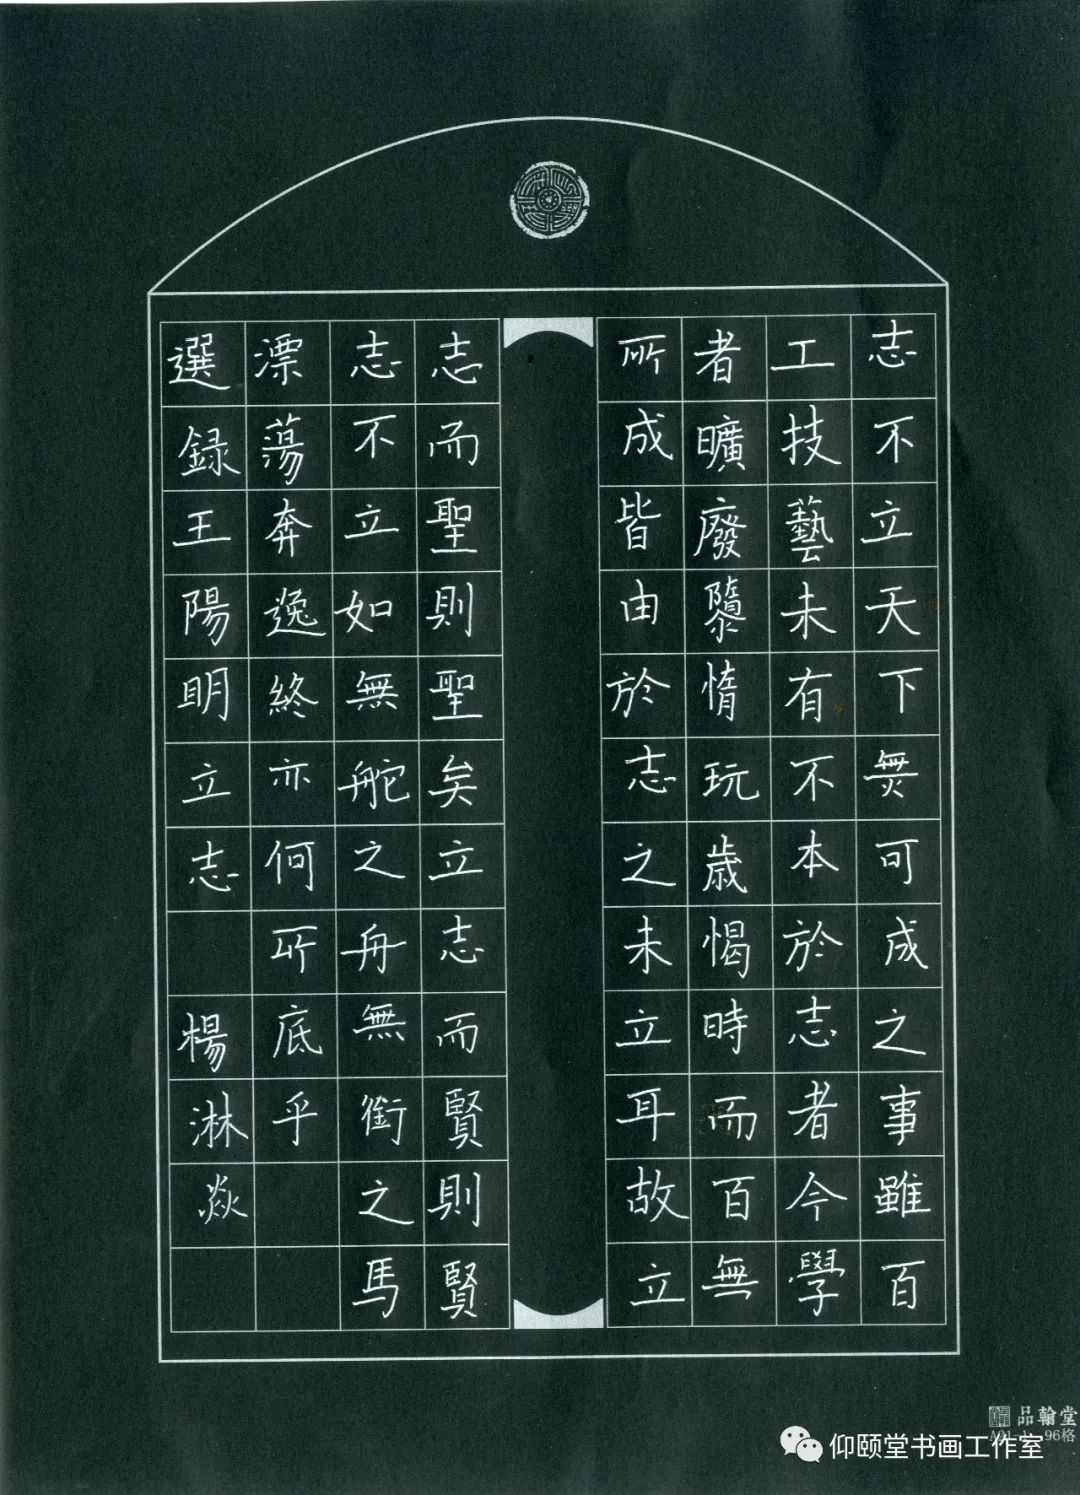 志不立天下無可成之事雖百
工技藝未有不本於志者今學
者曠廢隳惰玩歲愒時而百無
所成皆由於志之未立耳故立
志而聖則聖矣立志而賢則賢
志不立如無舵之舟無銜之馬
漂蕩奔逸終亦何所底乎
選録王陽明立志 楊淋焱
品翰堂
96格
仰颐堂书画工作室